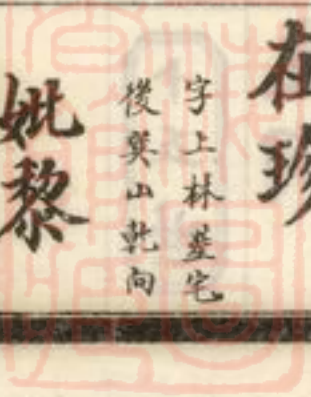 在珍
字上林塟宅
後巽山乾向
妣黎